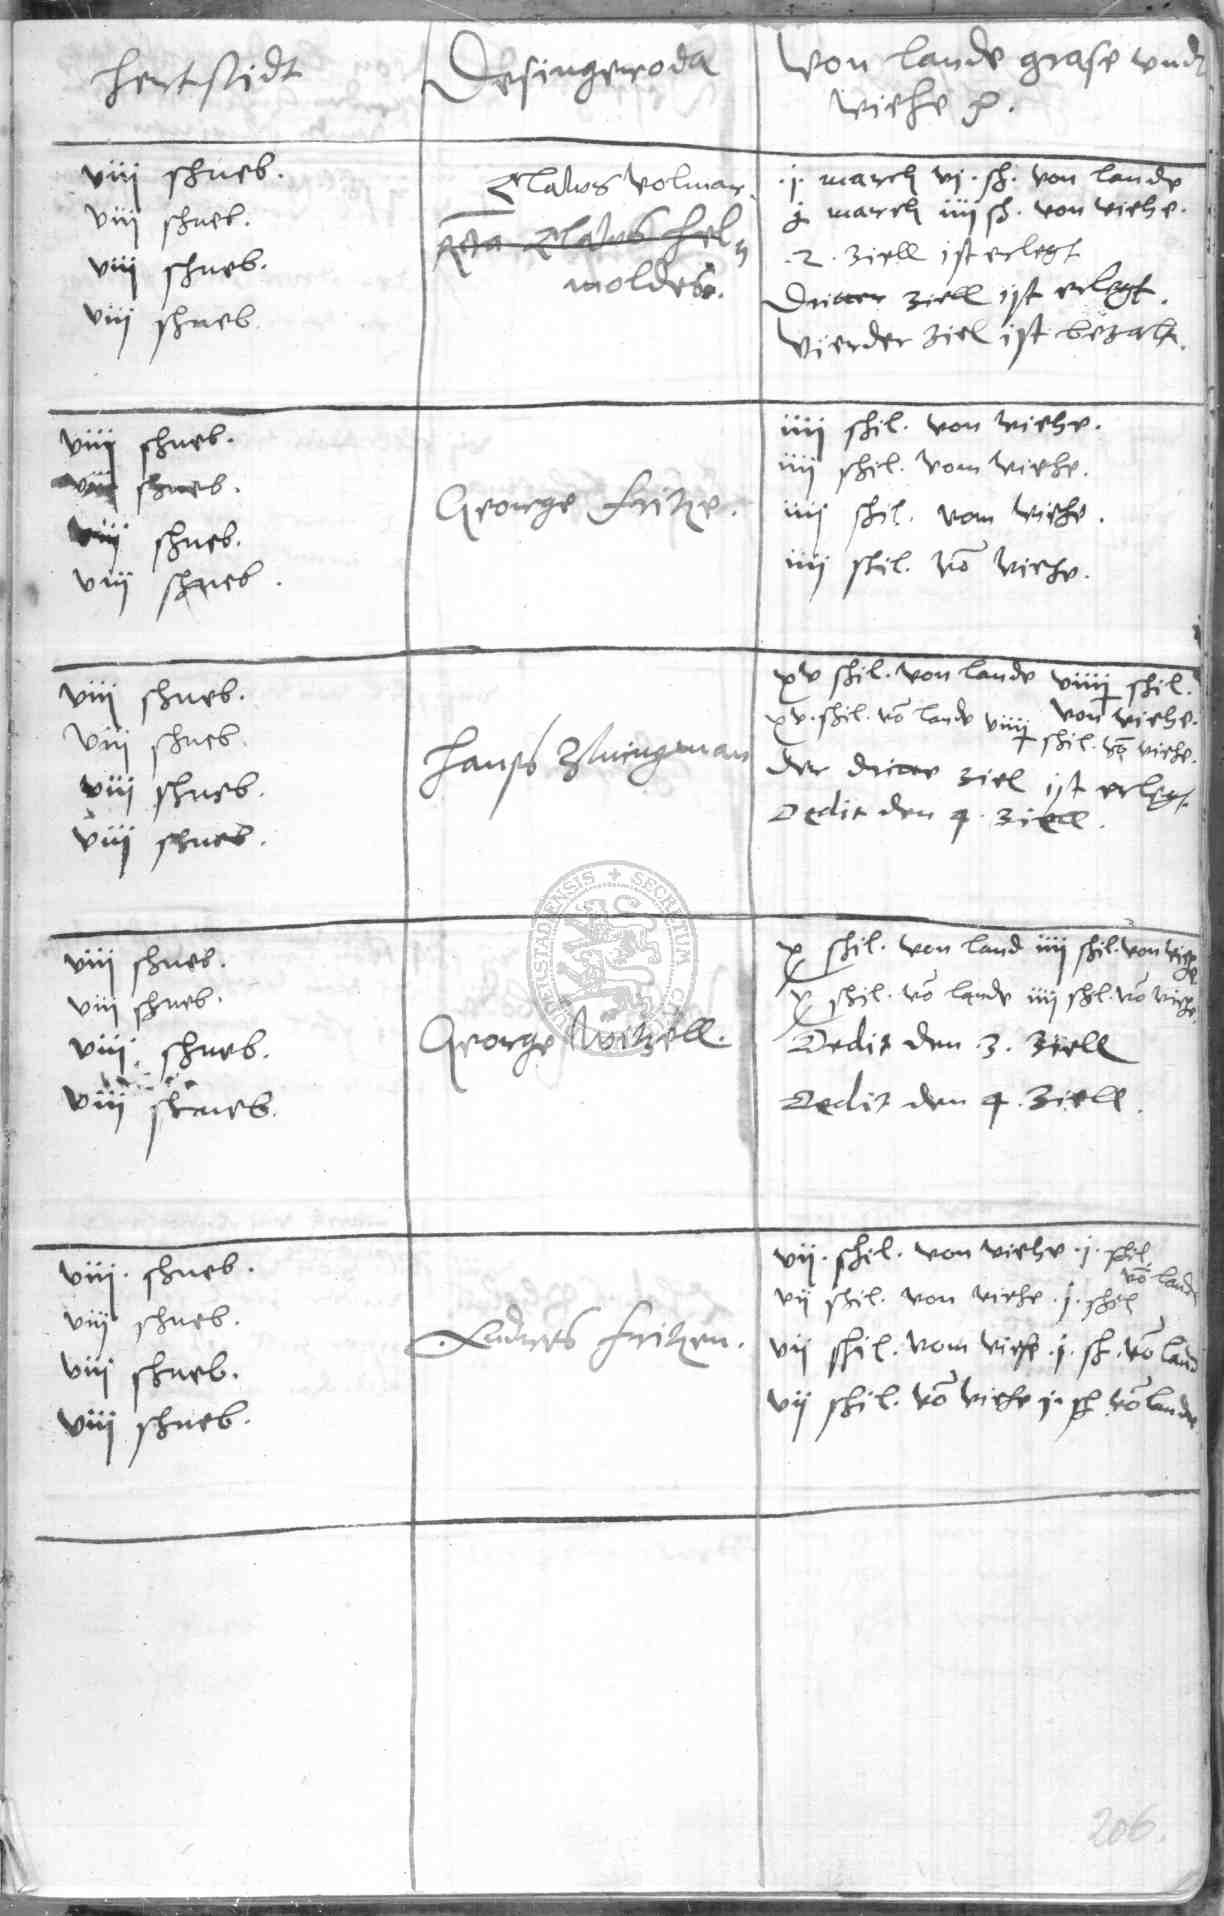 hertstidt
Desingeroda
Von lande grase vnd
viehe p.
viij schneb.
viij schneb.
viij schneb.
viij schneb.
Clawes Volmar.
Clawes Hel
moldes.
.j. march vj. sh. von lande
j march iiij sh. von viehe.
.2. ziell ist erlegt
Dritter ziell ist erlegt.
Vierder ziel ist bezalt.
viij schneb.
viij schneb.
viij schneb.
viij schneb.
George Fritze.
iiij schil. von viehe.
iiij schil. vom viehe.
iiij schil. vom viehe.
iiij schil. vō viehe.
viij schneb.
viij schneb.
viij schneb.
viij schneb.
Hanss Zwingman
xv schil. von lande viiij schil.
von viehe.
xv. schil. vō lande viiij
schil. vō viehe.
der dritte ziel ist erlegt
Dedit den 4. ziell.
viij schneb.
viij schneb.
viij schneb.
viij schneb.
George Witzell.
x schil. von land iiij schil. von viehe
x schil. vō lande iiij schl. vō viehe.
Dedit den .3. ziell
Dedit den 4. ziell.
viij. schneb.
viij schneb.
viij schneb.
viij schneb.
Andres Fritzen.
vij. schil. von viehe .j. schil
vō lande
vij schil. von viehe .j. schil
vij schil. vom viehe .j. sh. vō land
vij schil. vō viehe j. sh vō lande
206.
UDERSTADIENSIS + SECRETUM CI